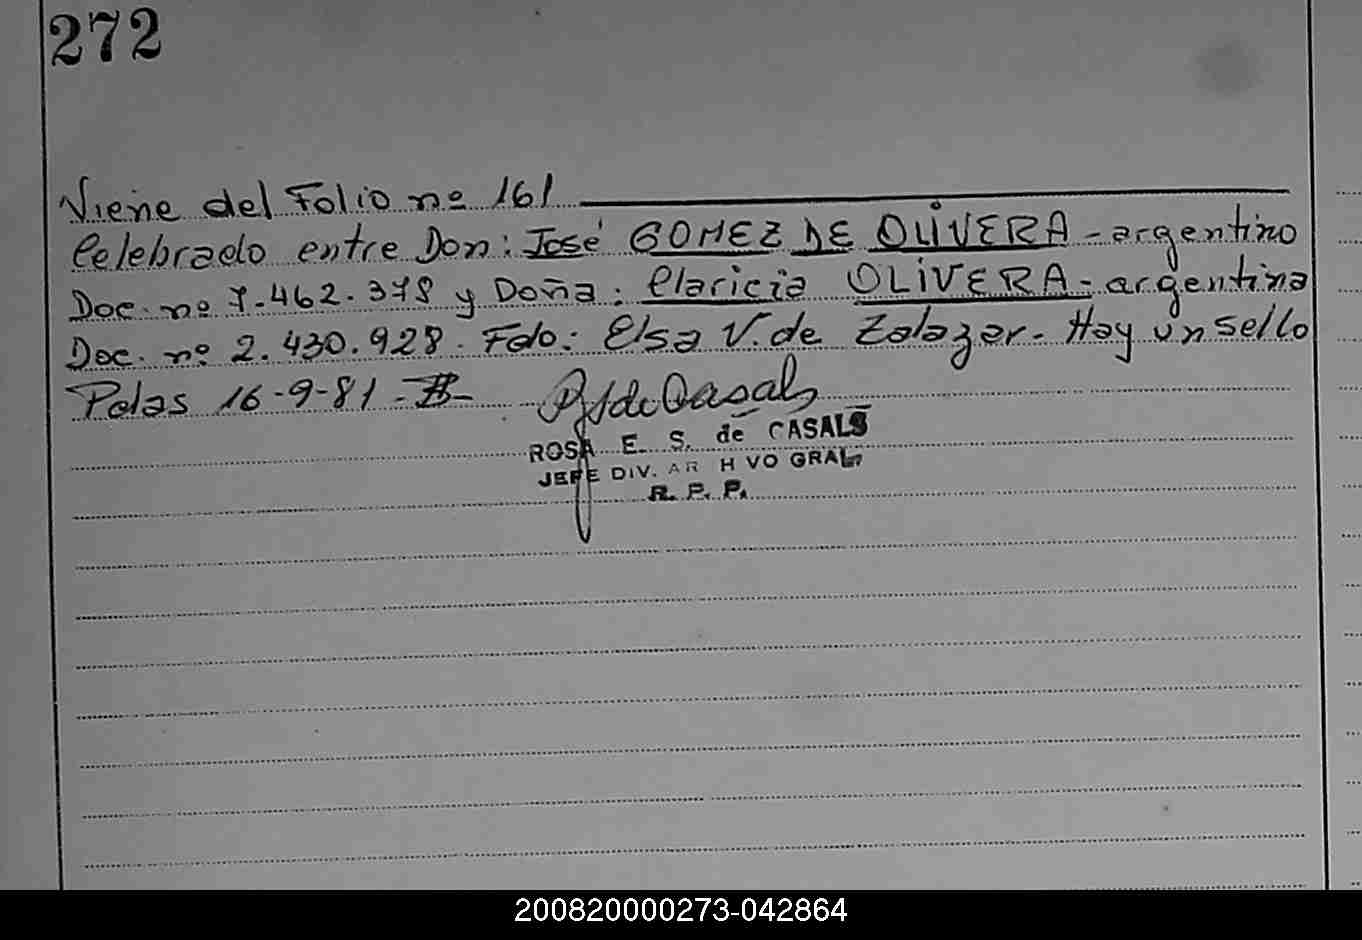 272
Viene del Folio nº 161
Celebrado entre Don: José GOMEZ DE OLIVERA - argentino
Doc. nº 7.462.378 y Doña: Claricia OLIVERA - argentina
Doc. nº 2.430.928. Fdo: Elsa V. de Zalazar. Hay un sello
Pdas 16-9-81 -
ROSA E. S. de CASALS
JEFE DIV. AR H VO GRAL.
R. P. P.
200820000273-042864